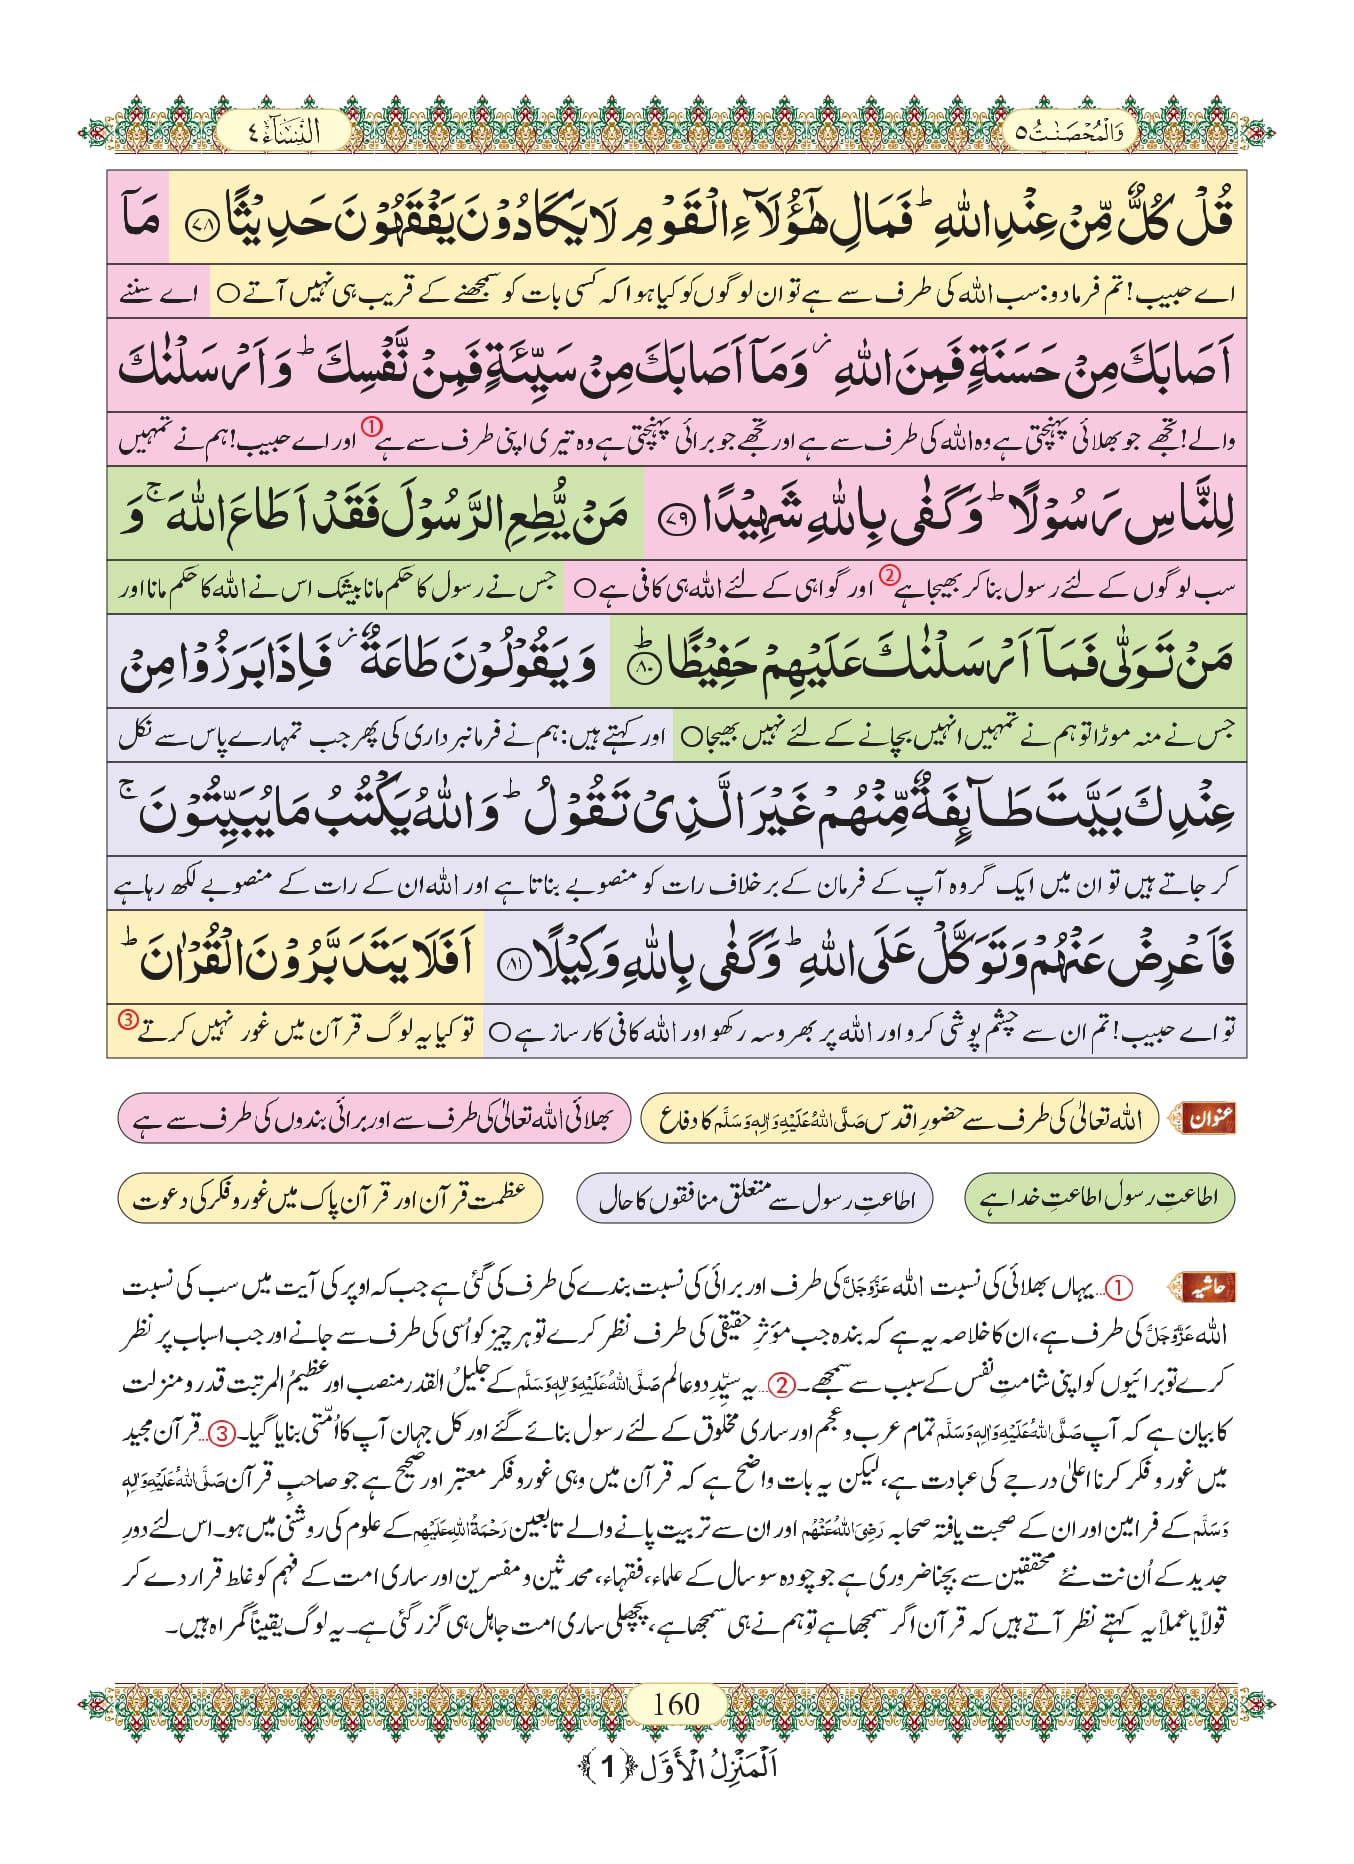 وَالْمُحْصَنٰتُ ٥
النِّسَآء ٤
قُلْ كُلٌّ مِّنْ عِنْدِ اللّٰهِ ؕ فَمَالِ هٰۤؤُلَآءِ الْقَوْمِ لَا یَكَادُوْنَ یَفْقَهُوْنَ حَدِیْثًا ﴿۷۸﴾ مَاۤ
اے حبیب! تم فرما دو: سب اللہ کی طرف سے ہے تو ان لوگوں کو کیا ہوا کہ کسی بات کو سمجھنے کے قریب ہی نہیں آتے○ اے سننے
اَصَابَكَ مِنْ حَسَنَةٍ فَمِنَ اللّٰهِ ؗ وَمَاۤ اَصَابَكَ مِنْ سَیِّئَةٍ فَمِنْ نَّفْسِكَ ؕ وَ اَرْسَلْنٰكَ
والے! تجھے جو بھلائی پہنچتی ہے وہ اللہ کی طرف سے ہے اور تجھے جو برائی پہنچتی ہے وہ تیری اپنی طرف سے ہے① اور اے حبیب! ہم نے تمہیں
لِلنَّاسِ رَسُوْلًا ؕ وَكَفٰی بِاللّٰهِ شَهِیْدًا ﴿۷۹﴾ مَنْ یُّطِعِ الرَّسُوْلَ فَقَدْ اَطَاعَ اللّٰهَ ۚ وَ
سب لوگوں کے لئے رسول بنا کر بھیجا ہے② اور گواہی کے لئے اللہ ہی کافی ہے○ جس نے رسول کا حکم مانا بیشک اس نے اللہ کا حکم مانا اور
مَنْ تَوَلّٰی فَمَاۤ اَرْسَلْنٰكَ عَلَیْهِمْ حَفِیْظًا ﴿ؕ۸۰﴾ وَیَقُوْلُوْنَ طَاعَةٌ ؗ فَاِذَا بَرَزُوْا مِنْ
جس نے منہ موڑا تو ہم نے تمہیں انہیں بچانے کے لئے نہیں بھیجا○ اور کہتے ہیں: ہم نے فرمانبرداری کی پھر جب تمہارے پاس سے نکل
عِنْدِكَ بَیَّتَ طَآىِٕفَةٌ مِّنْهُمْ غَیْرَ الَّذِیْ تَقُوْلُ ؕ وَاللّٰهُ یَكْتُبُ مَا یُبَیِّتُوْنَ ۚ
کر جاتے ہیں تو ان میں ایک گروہ آپ کے فرمان کے برخلاف رات کو منصوبے بناتا ہے اور اللہ ان کے رات کے منصوبے لکھ رہا ہے
فَاَعْرِضْ عَنْهُمْ وَتَوَكَّلْ عَلَی اللّٰهِ ؕ وَكَفٰی بِاللّٰهِ وَكِیْلًا ﴿۸۱﴾ اَفَلَا یَتَدَبَّرُوْنَ الْقُرْاٰنَ ؕ
تو اے حبیب! تم ان سے چشم پوشی کرو اور اللہ پر بھروسہ رکھو اور اللہ کافی کارساز ہے○ تو کیا یہ لوگ قرآن میں غور نہیں کرتے③
عنوان اللہ تعالیٰ کی طرف سے حضورِ اقدس صَلَّی اللہُ عَلَیْہِ وَاٰلِہٖ وَسَلَّم کا دفاع بھلائی اللہ تعالیٰ کی طرف سے اور برائی بندوں کی طرف سے ہے
اطاعتِ رسول اطاعتِ خدا ہے اطاعتِ رسول سے متعلق منافقوں کا حال عظمت قرآن اور قرآن پاک میں غور و فکر کی دعوت
حاشیہ ①...یہاں بھلائی کی نسبت اللہ عَزَّوَجَلَّ کی طرف اور برائی کی نسبت بندے کی طرف کی گئی ہے جب کہ اوپر کی آیت میں سب کی نسبت
اللہ عَزَّوَجَلَّ کی طرف ہے، ان کا خلاصہ یہ ہے کہ بندہ جب مؤثرِ حقیقی کی طرف نظر کرے تو ہر چیز کو اُسی کی طرف سے جانے اور جب اسباب پر نظر
کرے تو برائیوں کو اپنی شامتِ نفس کے سبب سے سمجھے۔ ②...یہ سیّدِ دو عالم صَلَّی اللہُ عَلَیْہِ وَاٰلِہٖ وَسَلَّم کے جلیلُ القدر منصب اور عظیمُ المرتبت قدر و منزلت
کا بیان ہے کہ آپ صَلَّی اللہُ عَلَیْہِ وَاٰلِہٖ وَسَلَّم تمام عرب و عجم اور ساری مخلوق کے لئے رسول بنائے گئے اور کل جہان آپ کا اُمتی بنایا گیا۔ ③...قرآن مجید
میں غور و فکر کرنا اعلیٰ درجے کی عبادت ہے، لیکن یہ بات واضح ہے کہ قرآن میں وہی غور و فکر معتبر اور صحیح ہے جو صاحبِ قرآن صَلَّی اللہُ عَلَیْہِ وَاٰلِہٖ
وَسَلَّم کے فرامین اور ان کے صحبت یافتہ صحابہ رَضِیَ اللہُ عَنْہُم اور ان سے تربیت پانے والے تابعین رَحْمَۃُ اللہِ عَلَیْہِم کے علوم کی روشنی میں ہو۔ اس لئے دورِ
جدید کے اُن نت نئے محققین سے بچنا ضروری ہے جو چودہ سو سال کے علماء، فقہاء، محدثین و مفسرین اور ساری امت کے فہم کو غلط قرار دے کر
قولاً یا عملاً یہ کہتے نظر آتے ہیں کہ قرآن اگر سمجھا ہے تو ہم نے ہی سمجھا ہے، پچھلی ساری امت جاہل ہی گزر گئی ہے۔ یہ لوگ یقیناً گمراہ ہیں۔
160
اَلْمَنْزِلُ الْاَوَّل ﴿1﴾